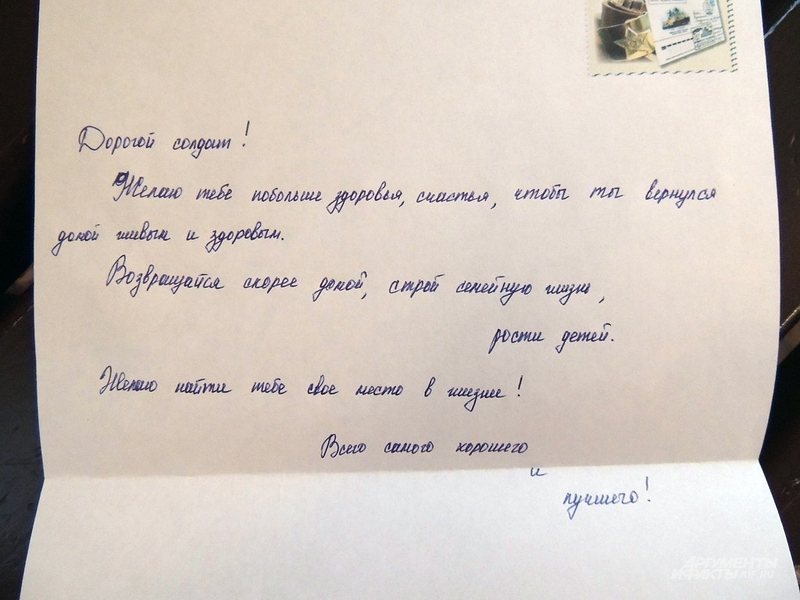 Дорогой солдат!
Желаю тебе побольше здоровья, счастья, чтобы ты вернулся
домой живым и здоровым.
Возвращайся скорее домой, строй семейную жизнь,
рости детей.
Желаю найти тебе свое место в жизни!
Всего самого хорошего
и
лучшего!
АРГУМЕНТЫ
И ФАКТЫ AIF.RU